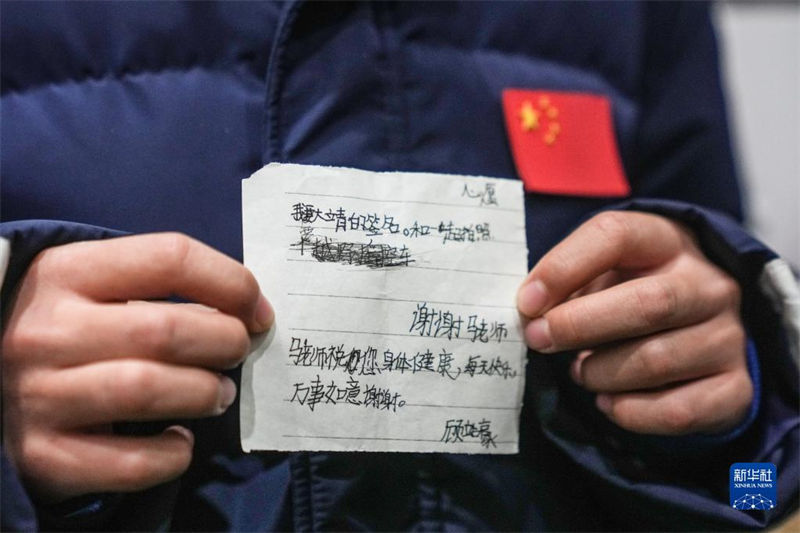 心愿
我要大靖的签名。和一起拍照
谢谢马老师
马老师祝您身体健康,每天快乐,
万事如意谢谢。
新华社
XINHUA NEWS